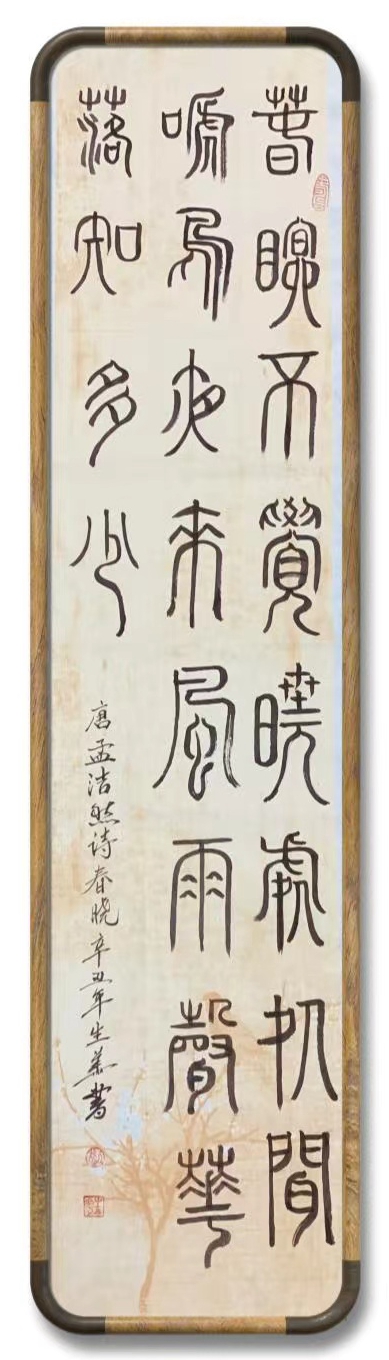 春眠不覺曉處処聞
嗁鳥夜來風雨聲華
落知多少
唐孟浩然诗春晓辛丑年生書